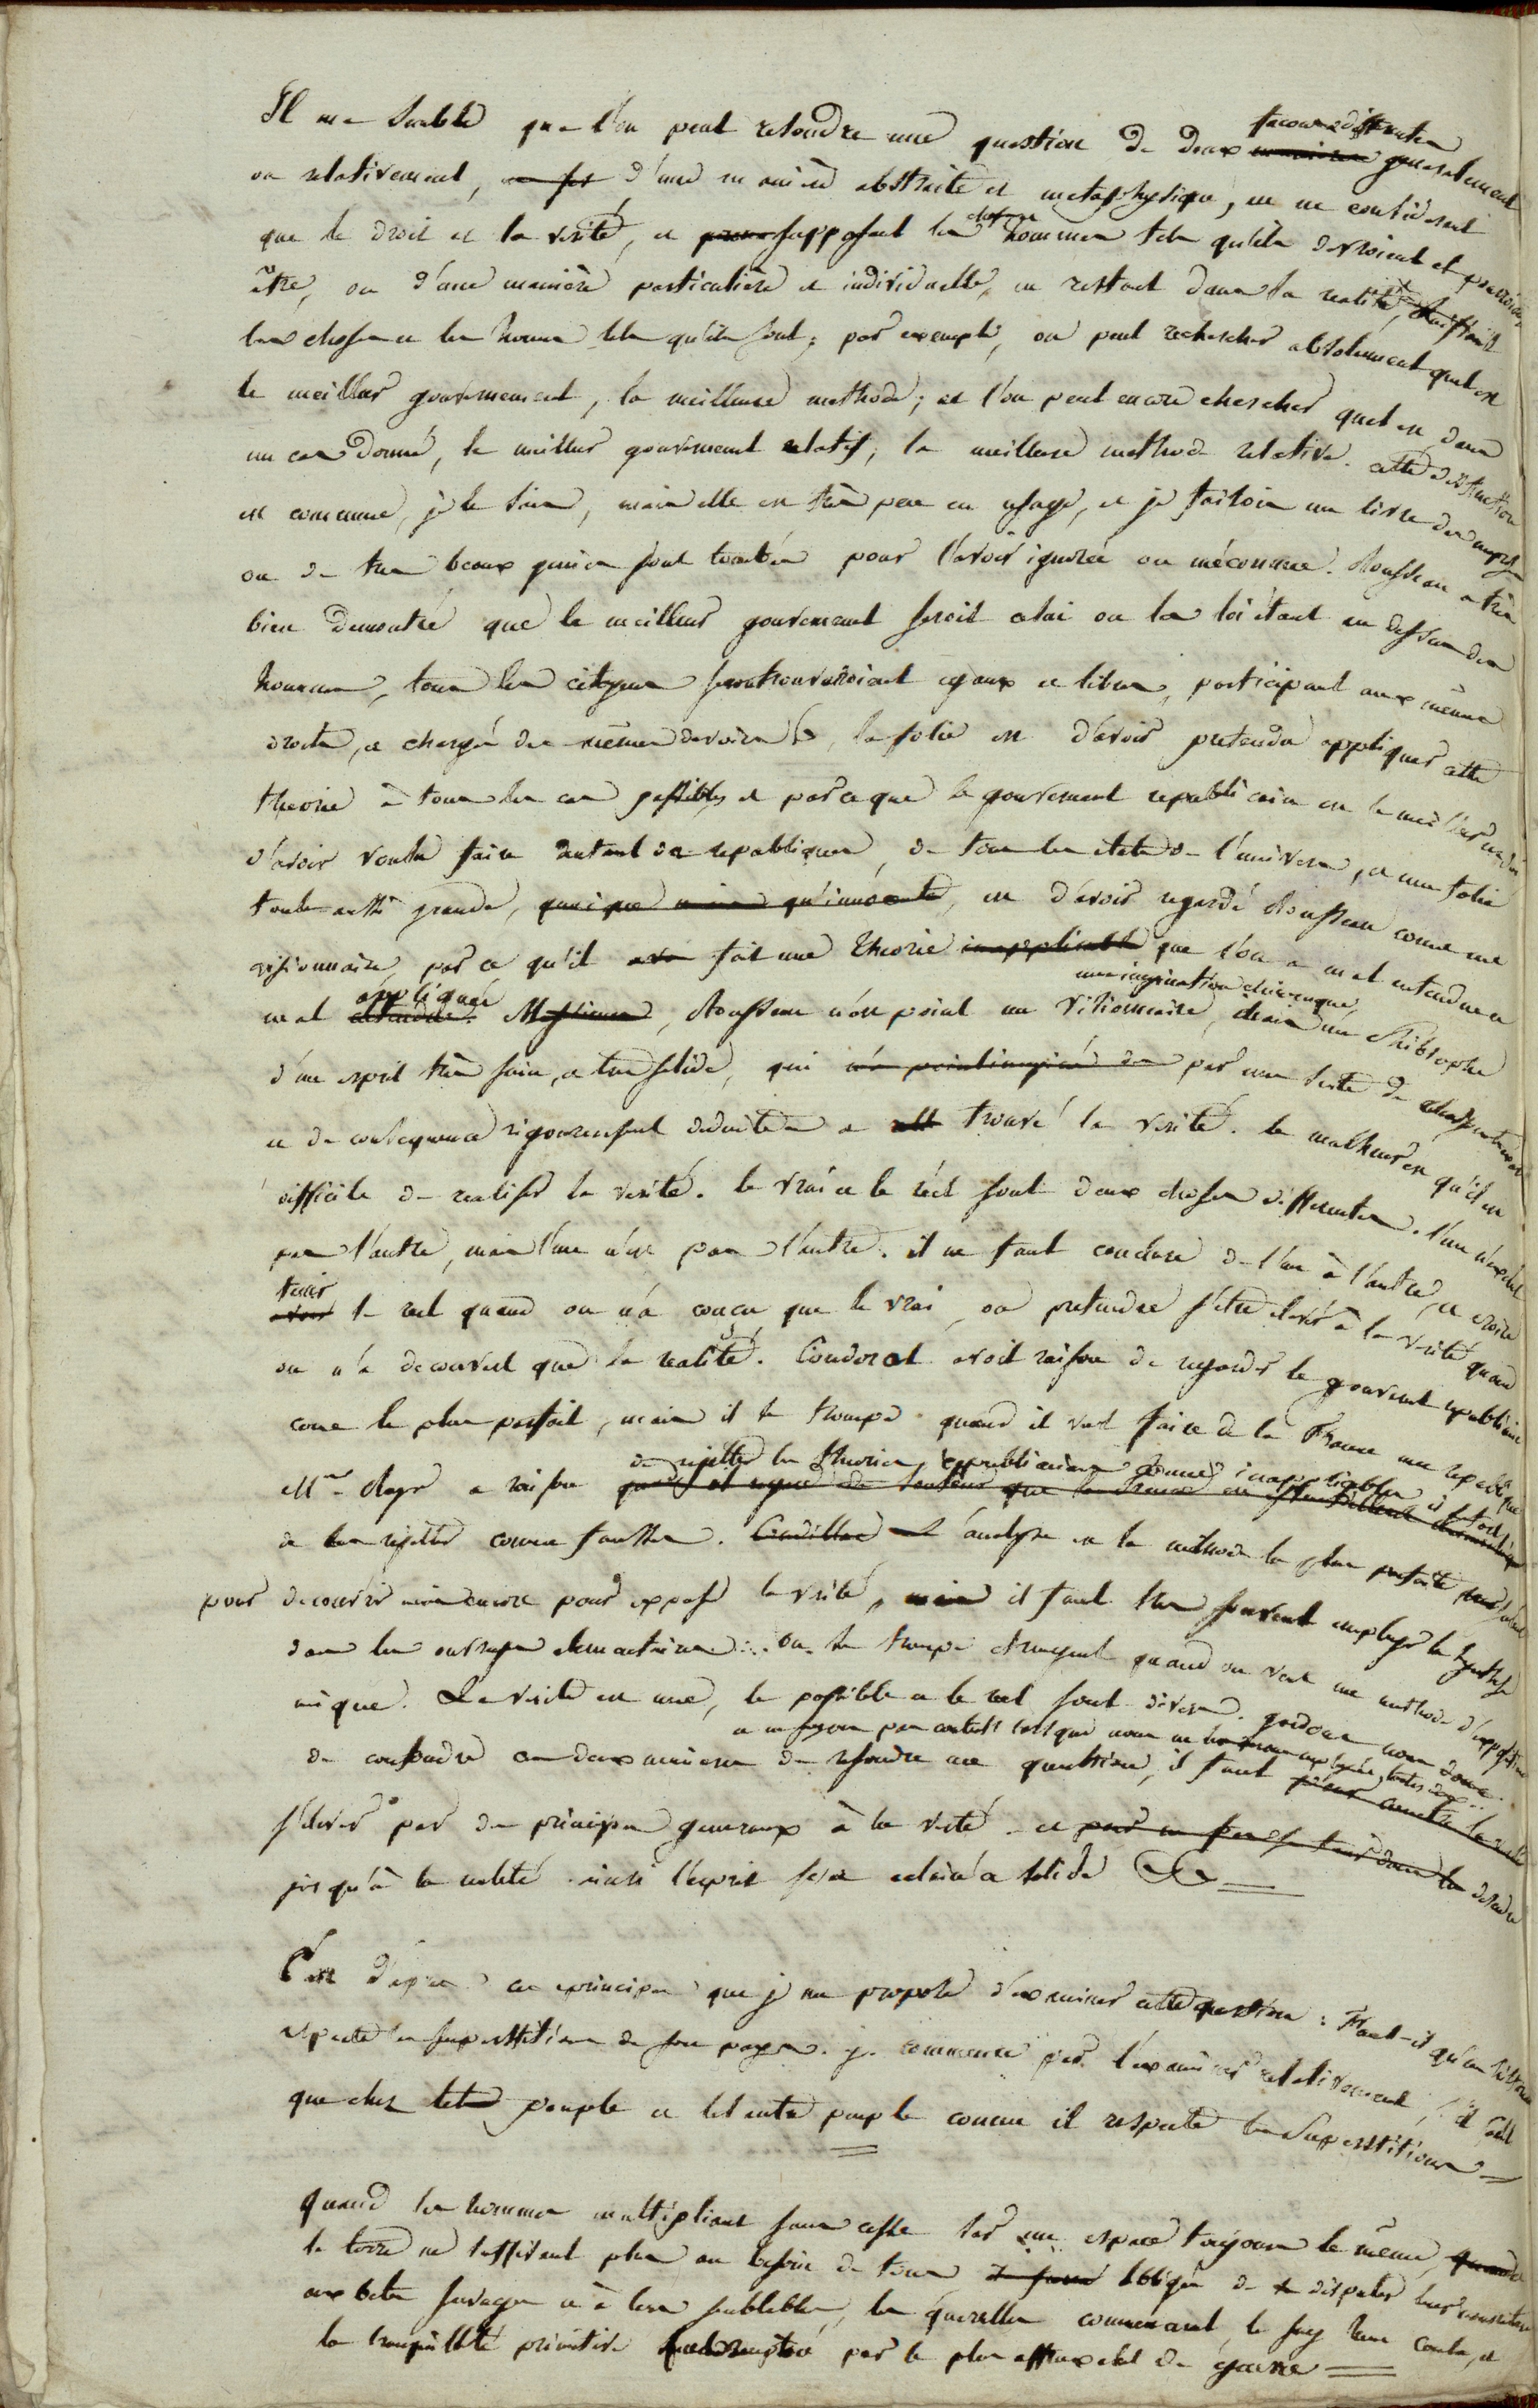 Il me semble que l'on peut resoudre une question de deux facons differentes generalement
ou relativement, d'une maniere abstraite et metaphysique, en ne considerant
que le droit et la verité, et supposant les choses hommes tels qu'ils devroient et pourroient
être, ou d'une manière particulière et individuelle, en restant dans la realité,
les choses et les hommes tels qu'ils sont; par exemple, on peut rechercher absolument quel est
le meilleur gouvernement, la meilleure methode; et l'on peut encore chercher quel est, dans
un cas donné, le meilleur gouvernement relatif, la meilleure methode relative. cette distinction
est commune, je le sais, mais elle est très peu en usage, et je ferois un livre des
ou de tres beaux genies sont tombés pour l'avoir ignorée ou méconnue. Rousseau a très
bien demontré que le meilleur gouvernement seroit celui ou la loi étant au dessus des
hommes, tous les citoyens se trouveroient egaux et libres, participant aux mêmes
droits, et chargés des mêmes devoirs, la folie est d'avoir pretendu appliquer cette
theorie à tous les cas possibles et parceque le gouvernement republicain est le meilleur
d'avoir voulu faire autant de republiques, de tous les etats de l'univers, et une folie
toute aussi grande, quoique moins qu'innocente, est d'avoir regardé Rousseau comme un
visionnaire, par ce qu'il fait une theorie inapplicable que l'on a mal entendue et
mal entendue appliquée. Messieurs, Rousseau n'est point un visionnaire, une imagination chimerique, mais un Philosophe
d'un esprit très sain, et tres solide, qui n'a point imaginé des par une suite de
et de consequences rigoureusement deduites a trouvé la verité. le malheur est qu'il est
difficile de realiser la verité. le vrai et le réel sont deux choses differentes. l'une n'exclut
pas l'autre, mais l'une n'est pas l'autre. il ne faut conclure de l'un à l'autre, et croire
tenir le reel quand on n'a conçu que le vrai, ou pretendre s'être elevé à la verité quand
on n'a decouvert que la realité. Condorcet avoit raison de regarder le gouvernement republicain
comme le plus parfait, mais il se trompe quand il veut faire de la France une republique
Mr. a raison de rejetter les theories republicaines comme inapplicables il a tort
de les rejetter comme fausses. Condillac l'analyse est la methode la plus parfaite
pour decouvrir mais encore pour exposer la verité, mais il faut tres souvent employer la synthese
dans les ouvrages elementaires. on se trompe etrangement quand on veut une methode d'exposition
unique. La verité est une, le possible et le reel sont divers. gardons nous donc
de confondre ces deux manieres de resoudre une question, et ne soyons pas contents lorsque nous ne les avons employées toutes deux. il faut
s'elever par des principes generaux à la verité et descendre
jusqu'à la realité ainsi l'esprit sera eclairé et solide
C'est d'après ces principes que je me propose d'examiner cette question: Faut-il qu'un
respecte les superstitions de son pays. je commence par l'examiner relativement,
que chez tel peuple et tel autre peuple comme il respecte les superstitions
quand les hommes multipliant sans cesse sur un espace toujours le même,
la terre ne suffisant plus au besoin de tous, obligés de disputer leur nourriture
aux betes sauvages et à leurs semblables, les querelles commencent, le sang coula, et
la tranquillité primitive par le plus affreux etat de guerre